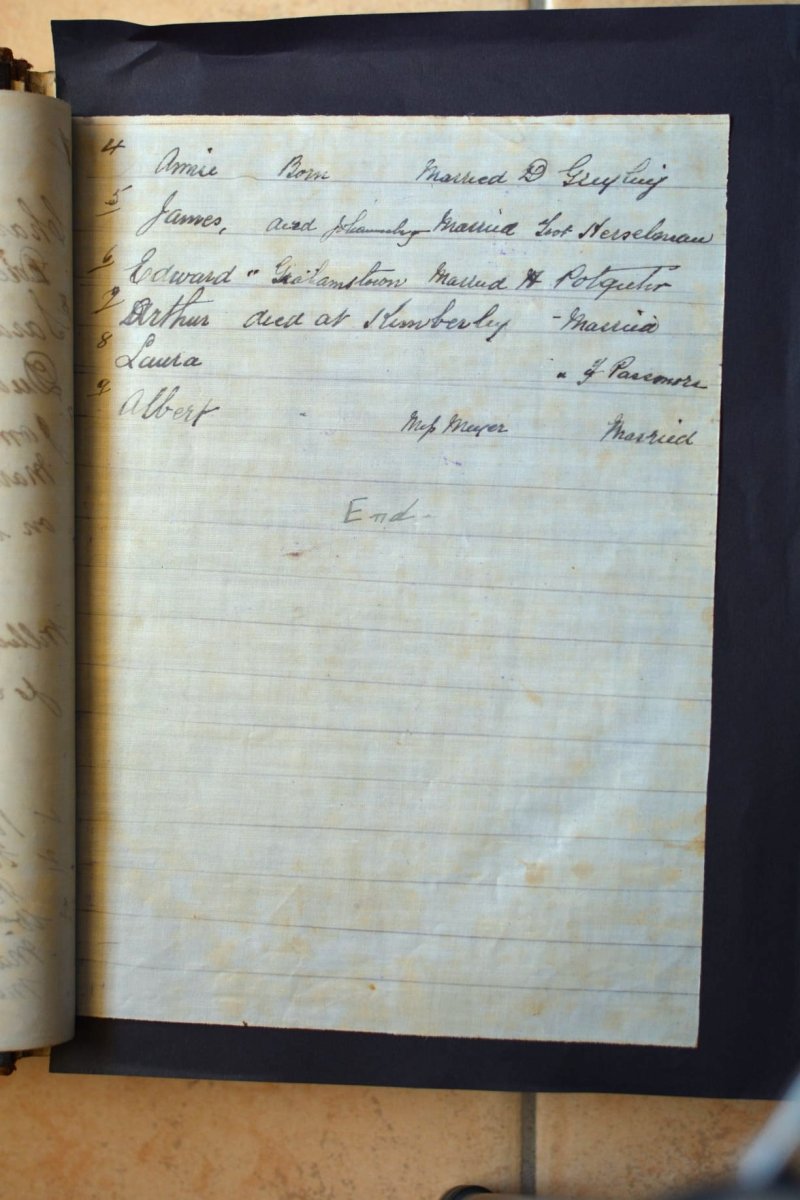 4 Annie Born Married D Greyling
5 James, died Johannesburg Married Herselman
6 Edward " Grahamstown Married H Potgieter
7 Arthur died at Kimberley - Married
8 Laura " J Passmore
9 Albert " Miss Meyer Married
End.